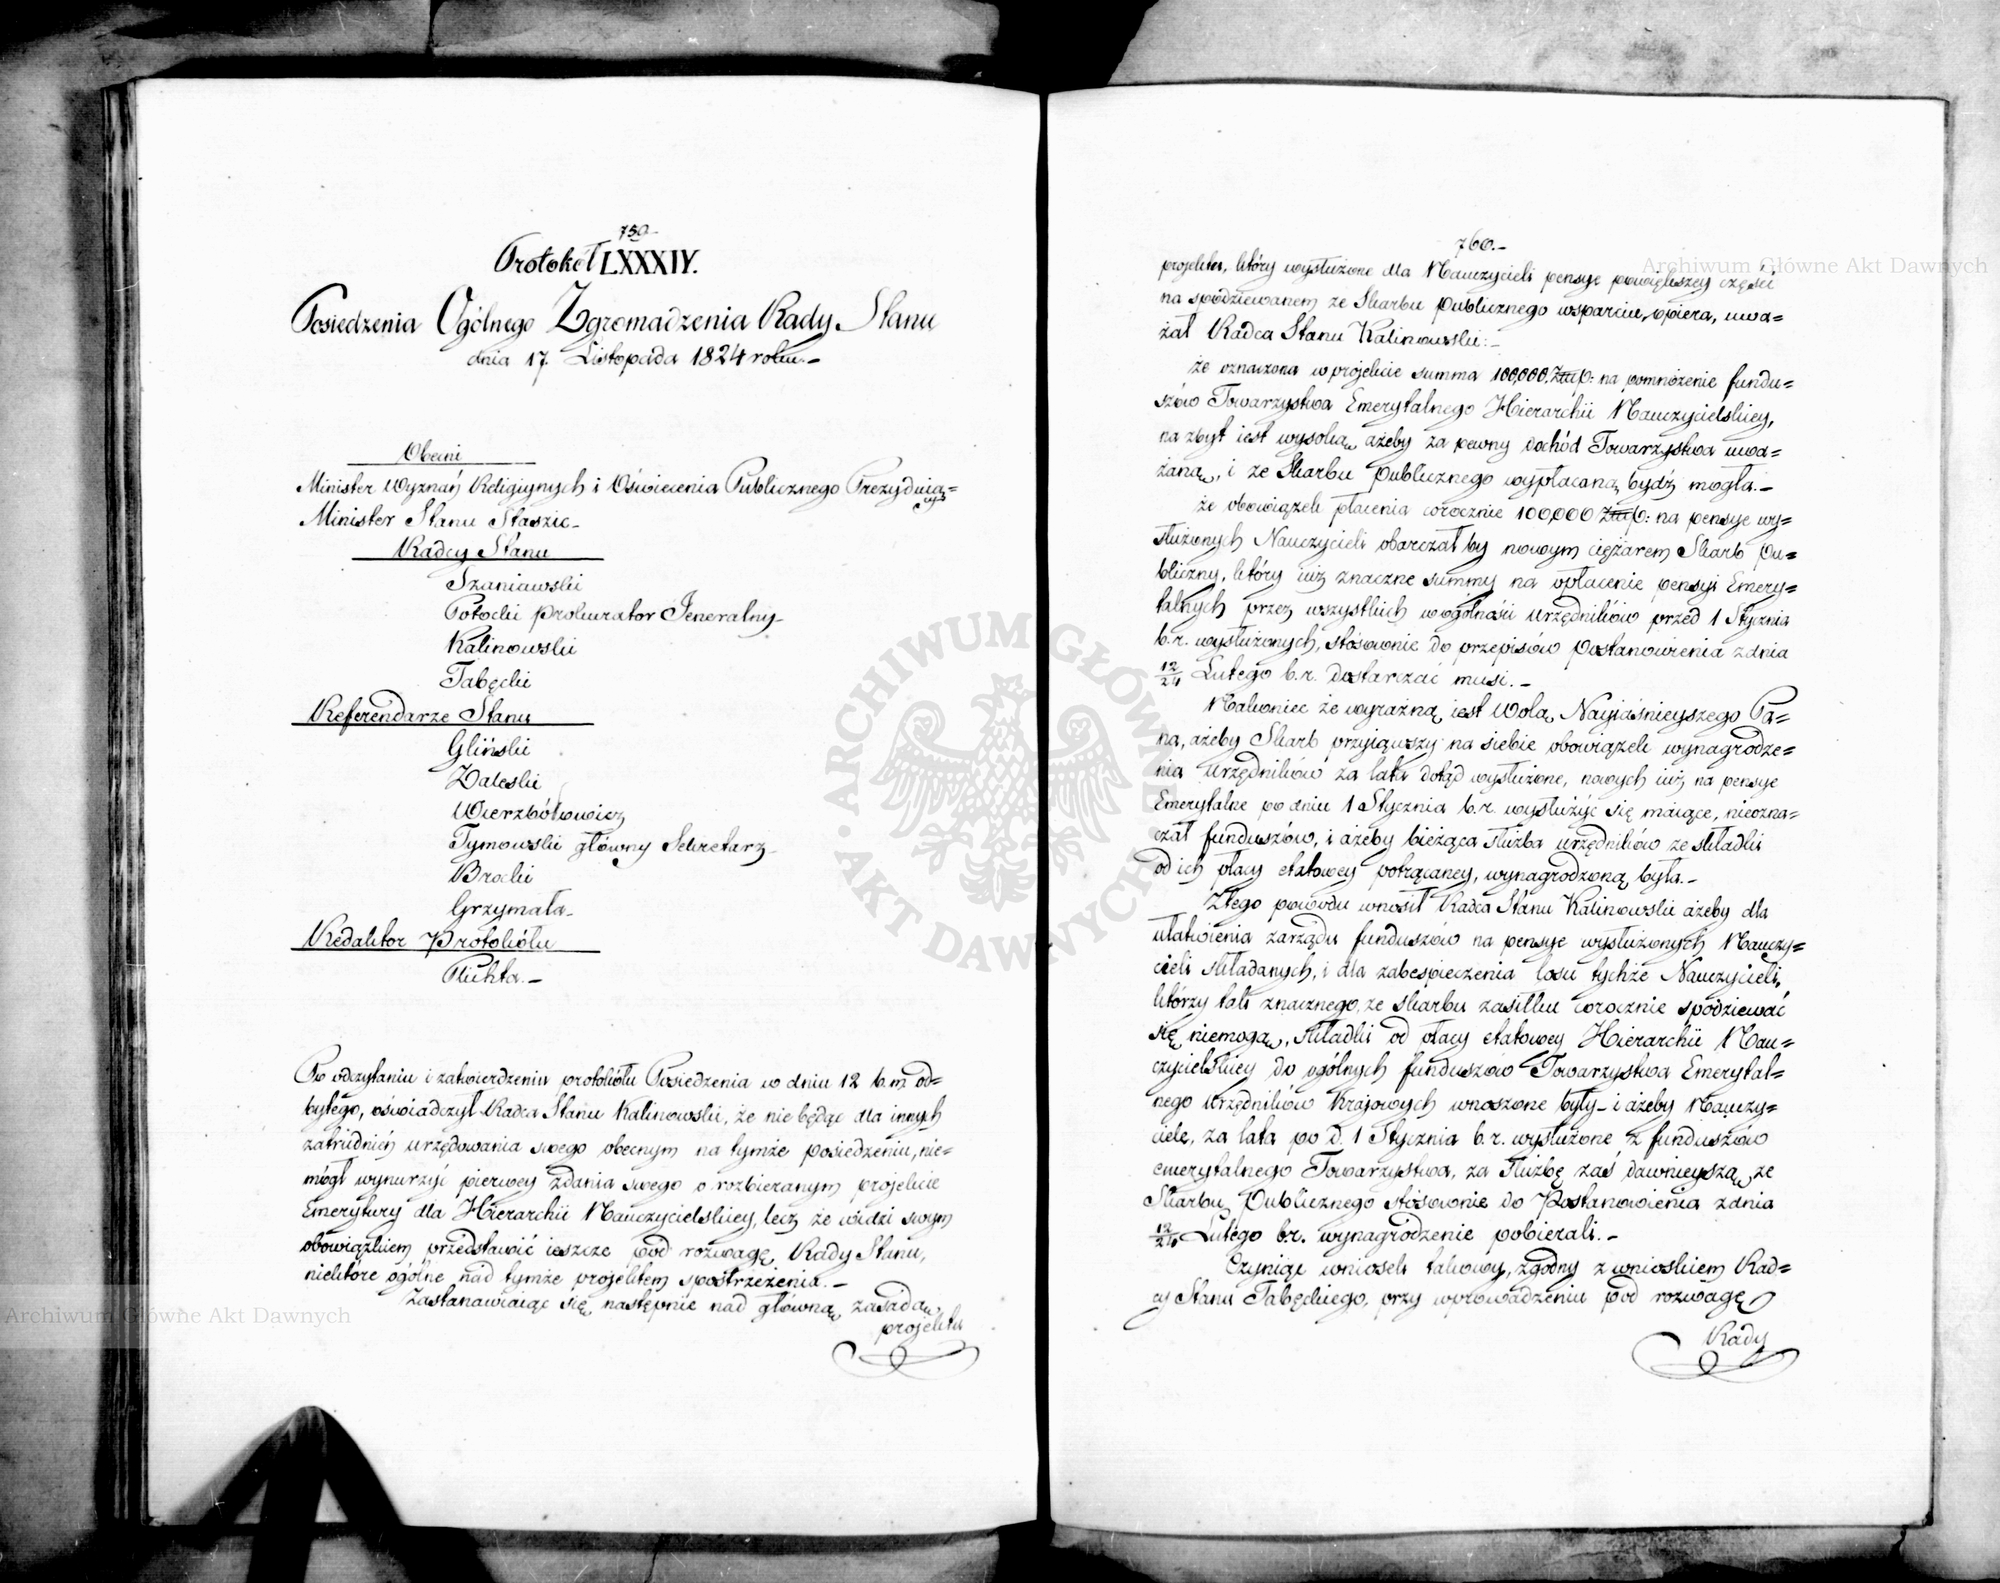 759.
Protokół LXXXIV.
Posiedzenia Ogólnego Zgromadzenia Rady Stanu
dnia 17 Listopada 1824 roku.-
Obecni
Minister Wyznań Religiynych i Oświecenia Publicznego Prezyduią=
cy
Minister Stanu Staszic-
Radcy Stanu
Szaniawski
Potocki Prokurator Jeneralny-
Kalinowski
Tabęcki
Referendarze Stanu
Gliński
Zaleski
Wierzbołowicz
Tymowski główny Sekretarz
Brocki
Grzymała-
Redaktor Protokółu
Plichta.-
Po odczytaniu i zatwierdzeniu protokółu Posiedzenia w dniu 12 b.m. od=
bytego, oświadczył Radca Stanu Kalinowski, że nie będąc dla innych
zatrudnień urzędowania swego obecnym na tymże posiedzeniu, nie=
mógł wynurzyć pierwey zdania swego o rozbieranym projekcie
Emerytury dla Hierarchii Nauczycielskiey, lecz że widzi swym
obowiązkiem przedstawić ieszcze pod rozwagę Rady Stanu,
niektóre ogólne nad tymże projektem spostrzeżenia.-
Zastanawiaiąc się następnie nad główną zasadą
projektu
760.-
projektu, który wysłużone dla Nauczycieli pensye powiększey części
na spodziewanem ze Skarbu Publicznego wsparciu, opiera, uwa=
żał Radca Stanu Kalinowski:-
że oznaczona w projekcie summa 100,000. Złlp: na pomnożenie fundu=
szów Towarzystwa Emerytalnego Hierarchii Nauczycielskiey,
na zbyt iest wysoką, ażeby za pewny dochód Towarzystwa uwa=
żaną, i ze Skarbu Publicznego wypłacaną bydź mogła.-
że obowiązek płacenia corocznie 100,000 Złlp: na pensye wy=
służonych Nauczycieli obarczałby nowym ciężarem Skarb Pu=
bliczny, który iuż znaczne summy na opłacenie pensyi Emery=
talnych przez wszystkich w ogólności urzędników przed 1 Stycznia
b.r. wysłużonych, stosownie do przepisów Postanowienia z dnia
12/24 Lutego b.r. dostarczać musi.-
Nakoniec że wyraźną iest Wolą Nayiaśnieyszego Pa=
na, ażeby Skarb przyiąwszy na siebie obowiązek wynagrodze=
nia urzędników za lata dotąd wysłużone, nowych iuż na pensye
Emerytalne po dniu 1 Stycznia b.r. wysłużyć się maiące, nieozna=
czał funduszów, i ażeby bieżąca służba urzędników ze składki
od ich płacy etatowey potrącaney, wynagrodzoną była.-
Z tego powodu wnosił Radca Stanu Kalinowski ażeby dla
ułatwienia zarządu funduszów na pensye wysłużonych Nauczy=
cieli składanych, i dla zabespieczenia losu tychże Nauczycieli,
którzy tak znacznego ze skarbu zasiłku corocznie spodziewać
się niemogą, składki od płacy etatowey Hierarchii Nau=
czycielskiey do ogólnych funduszów Towarzystwa Emerytal=
nego Urzędników Krajowych wnoszone były- i ażeby Nauczy=
ciele, za lata po d. 1 Stycznia b.r. wysłużone z funduszów
emerytalnego Towarzystwa, za służbę zaś dawnieyszą ze
Skarbu Publicznego stosownie do Postanowienia z dnia
12/24 Lutego b.r. wynagrodzenie pobierali.-
Czyniąc wniosek takowy, zgodny z wnioskiem Rad=
cy Stanu Tabęckiego, przy wprowadzeniu pod rozwagę
Rady